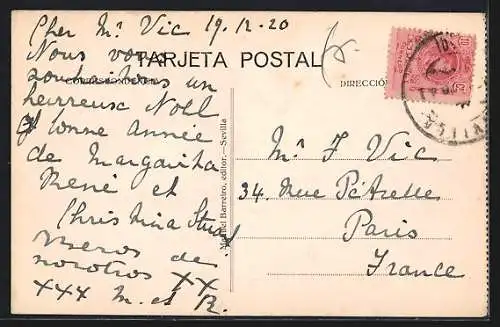 Cher Mr Vic 19.12.20
Nous vous
TARJETA POSTAL
souhaitons un
CORRESPONDENCIA
DIRECCIÓN
heureuse Noël
& bonne année
de Margarita
René et
Christina Stuart
Besos de
nosotros XX
XXX M. et R.
Manuel Barreiro, editor.—Sevilla
Mr F Vic
34. Rue
Paris
France